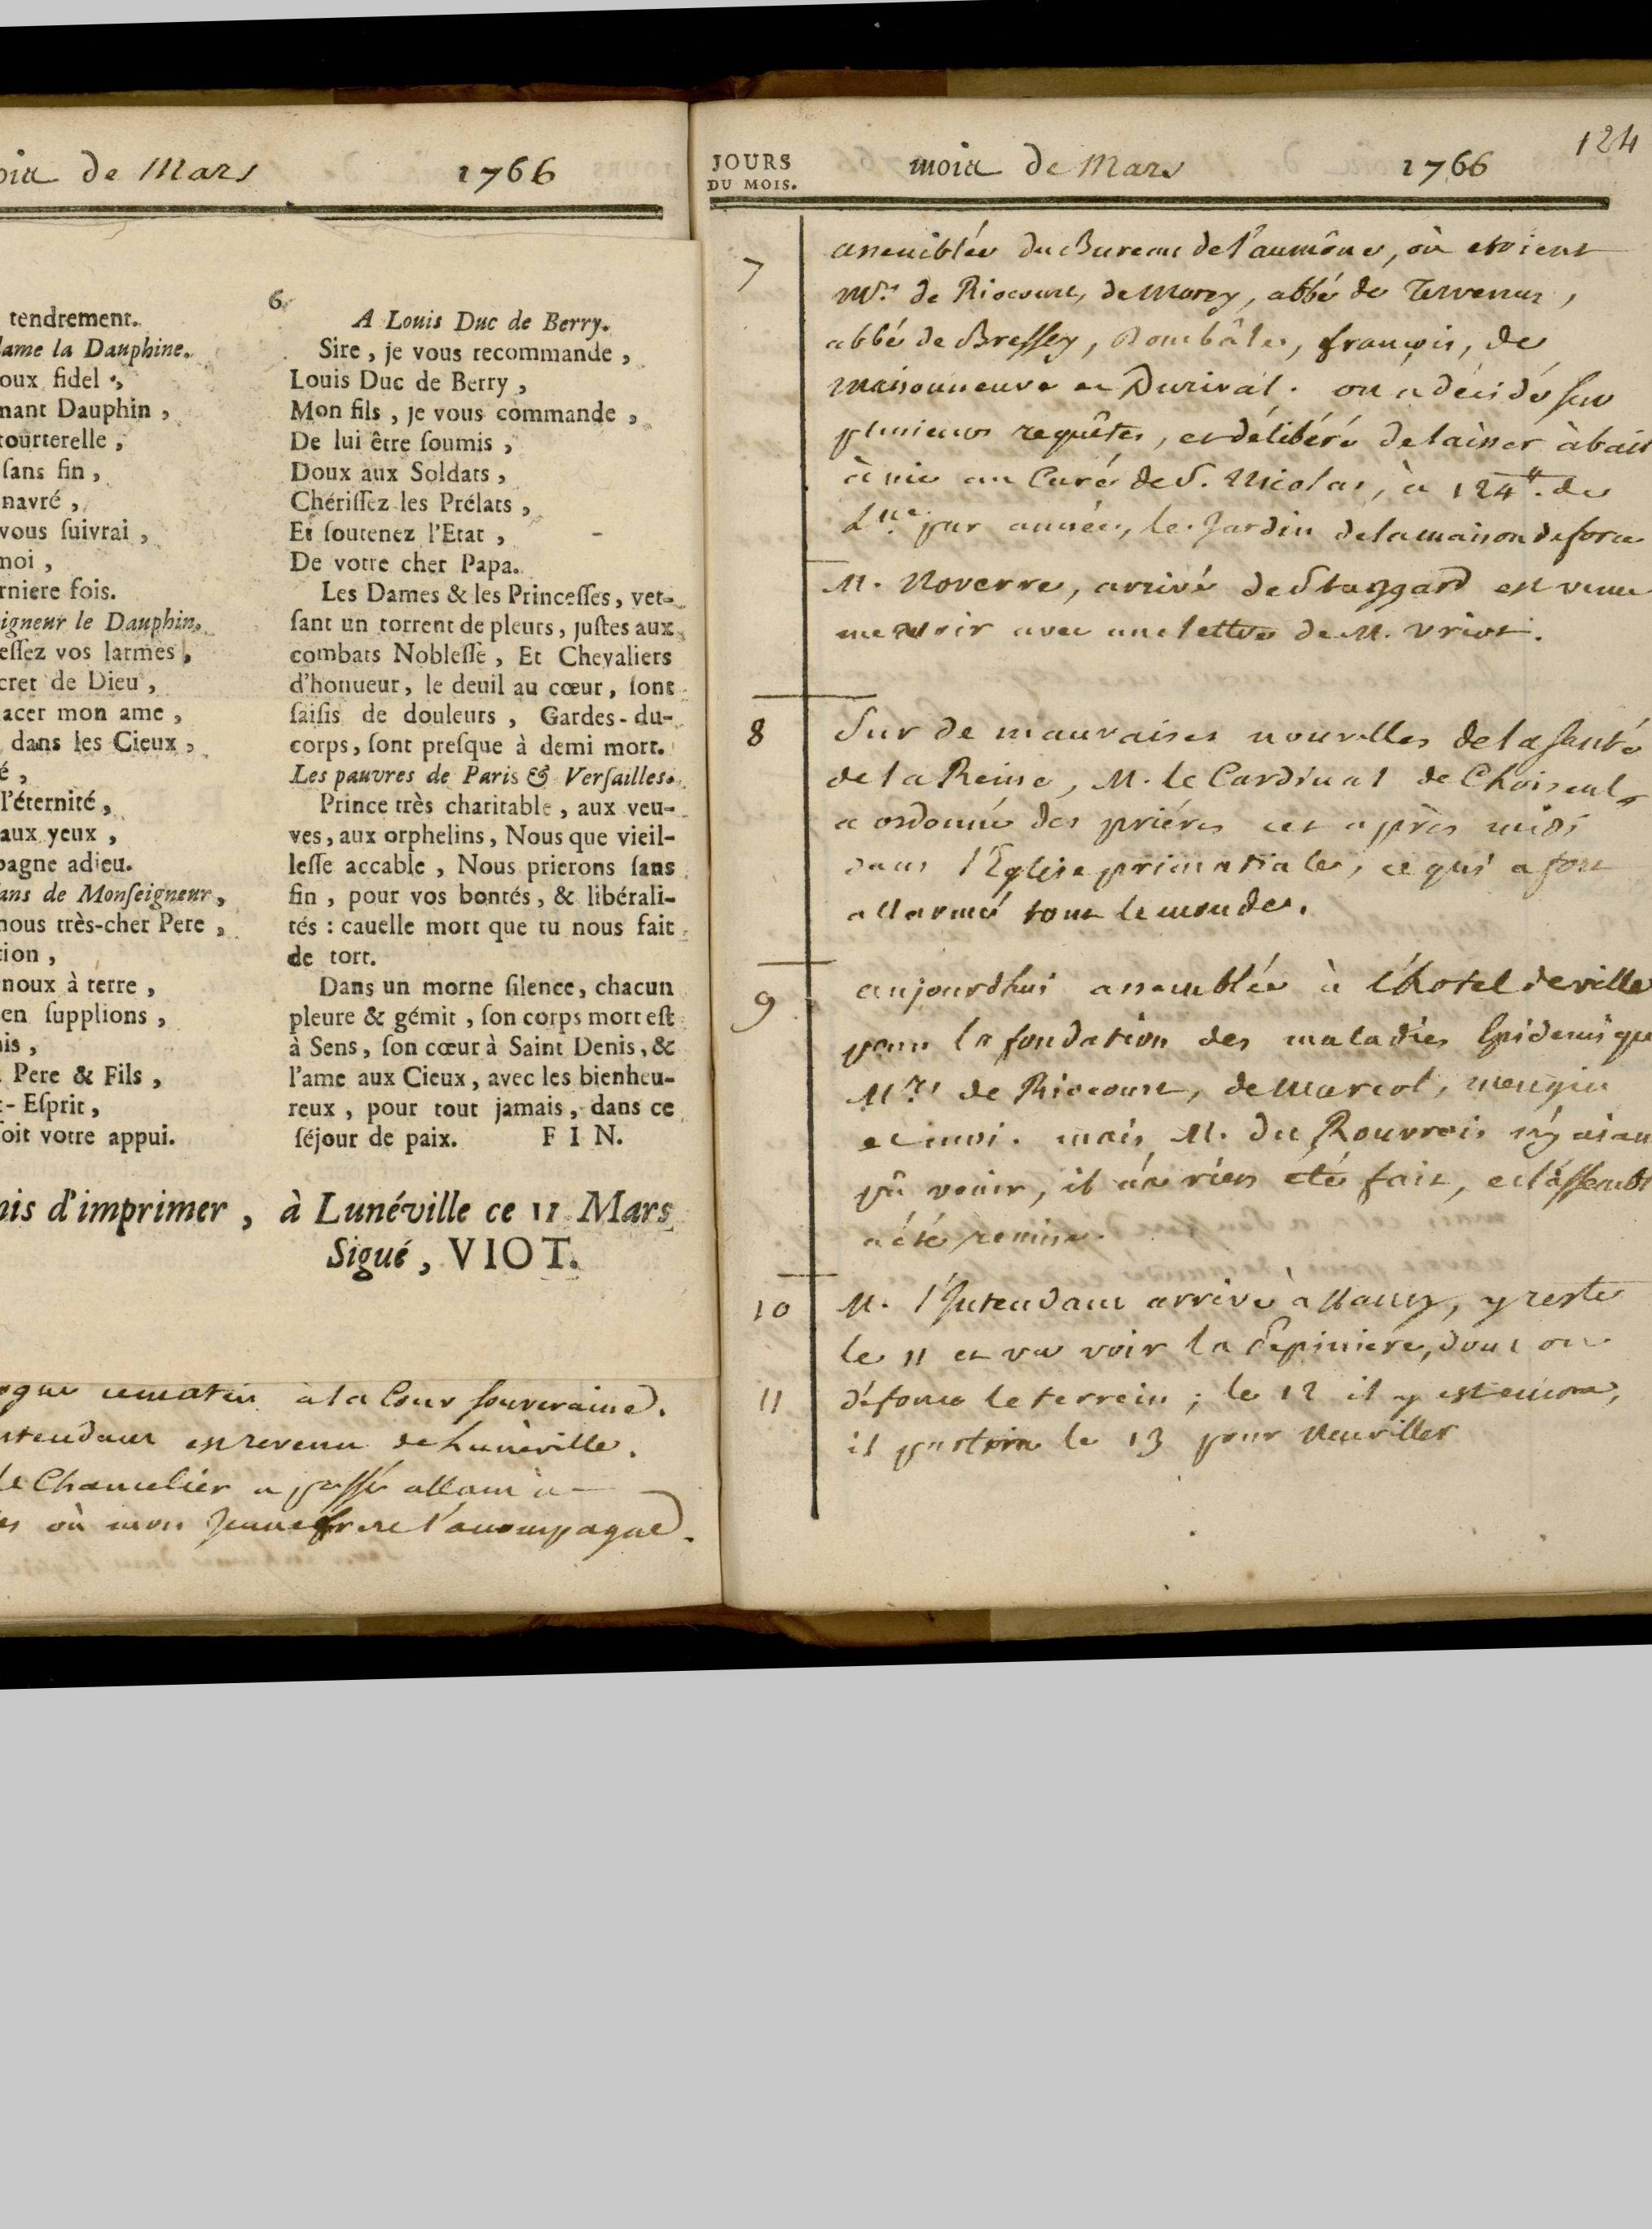 de Mars 1766
tendrement.
lame la Dauphine.
oux fidel,
nant Dauphin,
tourterelle,
ſans fin,
navré,
vous ſuivrai,
moi,
rniere fois.
igneur le Dauphin,
eſſez vos larmes,
cret de Dieu,
acer mon ame,
dans les Cieux,
é,
l'éternité,
aux yeux,
pagne adieu.
ans de Monſeigneur,
nous très-cher Pere,
tion,
noux à terre,
en ſupplions,
is,
Pere & Fils,
t-Eſprit,
ſoit votre appui.
6
A Louis Duc de Berry.
Sire, je vous recommande,
Louis Duc de Berry,
Mon fils, je vous commande,
De lui être ſoumis,
Doux aux Soldats,
Chériſſez les Prélats,
Et ſoutenez l'Etat,
De votre cher Papa.
Les Dames & les Princeſſes, ver-
ſant un torrent de pleurs, juſtes aux
combats Nobleſſe, Et Chevaliers
d'honueur, le deuil au cœur, ſont
ſaiſis de douleurs, Gardes-du-
corps, ſont preſque à demi mort.
Les pauvres de Paris & Verſailles.
Prince très charitable, aux veu-
ves, aux orphelins, Nous que vieil-
leſſe accable, Nous prierons ſans
fin, pour vos bontés, & libérali-
tés : cauelle mort que tu nous fait
de tort.
Dans un morne ſilence, chacun
pleure & gémit, ſon corps mort eſt
à Sens, ſon cœur à Saint Denis, &
l'ame aux Cieux, avec les bienheu-
reux, pour tout jamais, dans ce
ſéjour de paix. FIN.
mis d'imprimer, à Lunéville ce 11 Mars
Sigué, VIOT.
ce matin à la Cour souveraine.
ntendant est revenu de Lunéville.
le Chancelier a passé allant à
où mon Jeune frere l'accompagne.
124
JOURS
DU MOIS.
mois de Mars 1766
7 assemblée du Bureau de l'aumône, où etoient
Mrs. de Riocourt, de Morey, abbé de Tervenus,
abbé de Bressey, Dombâle, françois, de
maisonneuve et Durival. on a décidé sur
plusieurs requêtes, et délibéré de laisser à bail
à vie au Curé de S. Nicolas, à 124 ₶. de
par année, le Jardin de la maison de force
M. Noverre, arrivé de Stuggard est venu
me voir avec une lettre de M. Vriot.
8 Sur de mauvaises nouvelles de la santé
de la Reine, M. le Cardinal de Choiseul
a ordonné des priéres cet après midi
dans l'Eglise primatiale, ce qui a fort
allarmé tout le monde.
9 aujourdhui assemblée à l'hotel de ville
pour la fondation des maladies Epidemique
Mrs. de Riocourt, de Marcol, mengin
et moi. mais M. du Rouvrois n'y aian
pû venir, il n'a rien été fait, et l'assembl
a été remise.
10 M. l'Intendant arrivé à Nancy, y reste
le 11 et va voir la Pepiniere, dont on
11 défonce le terrein ; le 12 il y est encore,
il partira le 13 pour Neuviller